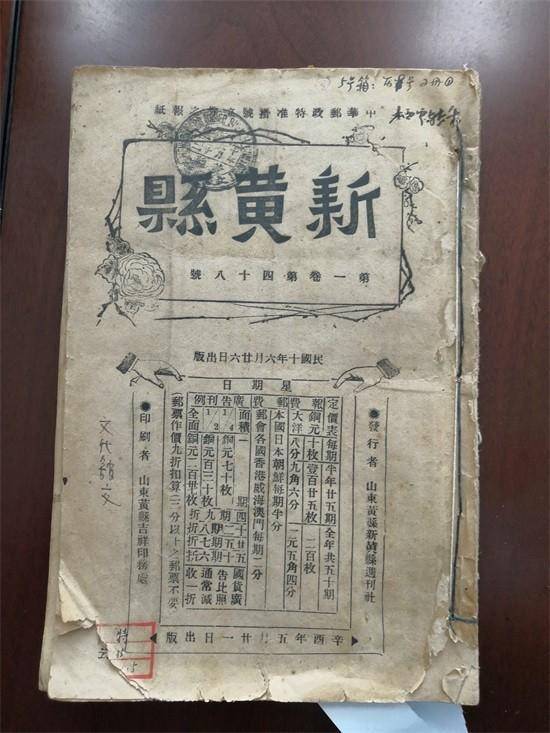 5号箱
中華郵政特准掛號立券之報紙
新黄縣
第一卷第四十八號
民國十年六月廿六日出版
星期日
●發行者 山東黃縣新黃縣週刊社
定價表 每期 半年廿五期 全年共五十期
報費 銅元十枚 壹百廿五枚 二百枚
大洋 八分 九角六分 一元五角四分
郵費 本國日本朝鮮每期半分
郵會各國香港威海澳門每期二分
廣告刊例
面積 一期 四期 十二期 廿五期 五十期
1/4 銅元七十枚
1/2 銅元百二十枚
全面 銅元二百廿枚
九折 八折 七折 六折
國貨廣告比照通常減收一折
郵票作價九折扣算三分以上之郵票不要
●印刷者 山東黃縣吉祥印務處
辛酉年五月廿一日出版
特
15